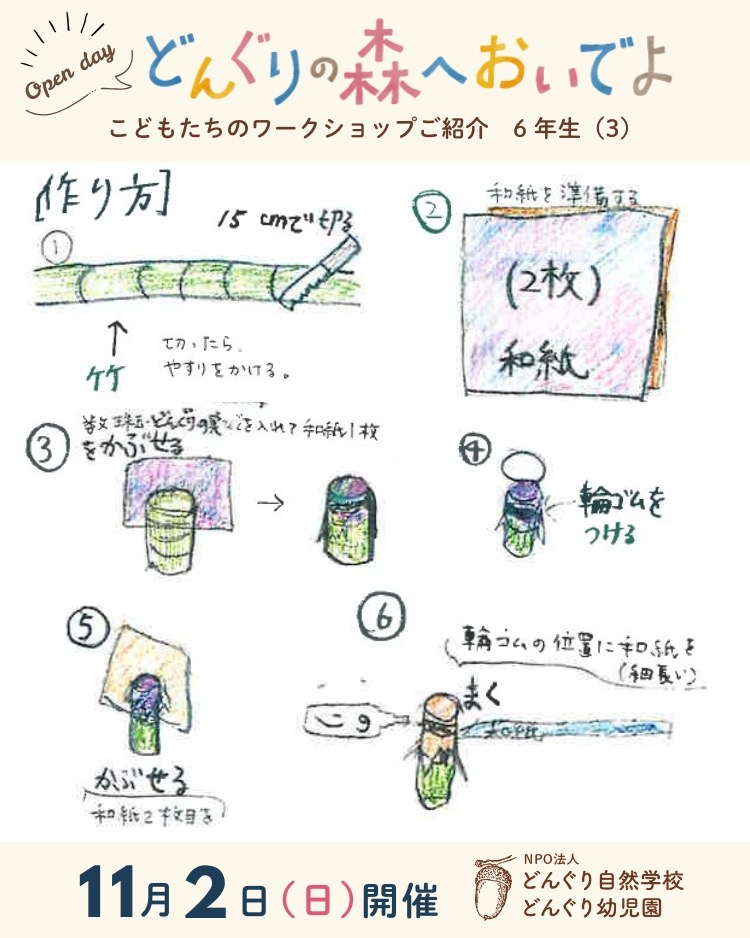 Open day
どんぐりの森へおいでよ
こどもたちのワークショップご紹介 6年生（3）
[作り方]
①
15cmで切る
竹
切ったら、
やすりをかける。
②
和紙を準備する
(2枚)
和紙
③
どんぐりの実などを入れて和紙1枚
をかぶせる
④
輪ゴムを
つける
⑤
かぶせる
和紙2枚目を
⑥
輪ゴムの位置に和紙を
(細長い)
まく
のり
和紙
11月2日（日）開催
NPO法人
どんぐり自然学校
どんぐり幼児園